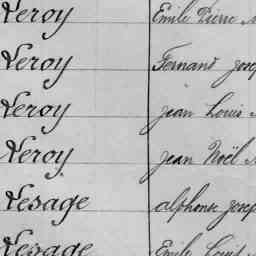 Leroy Emile Pierre
Leroy Fernand Josep
Leroy Jean Louis
Leroy Jean Noël
Lesage Alphonse Josep
Lesage Emile Louis